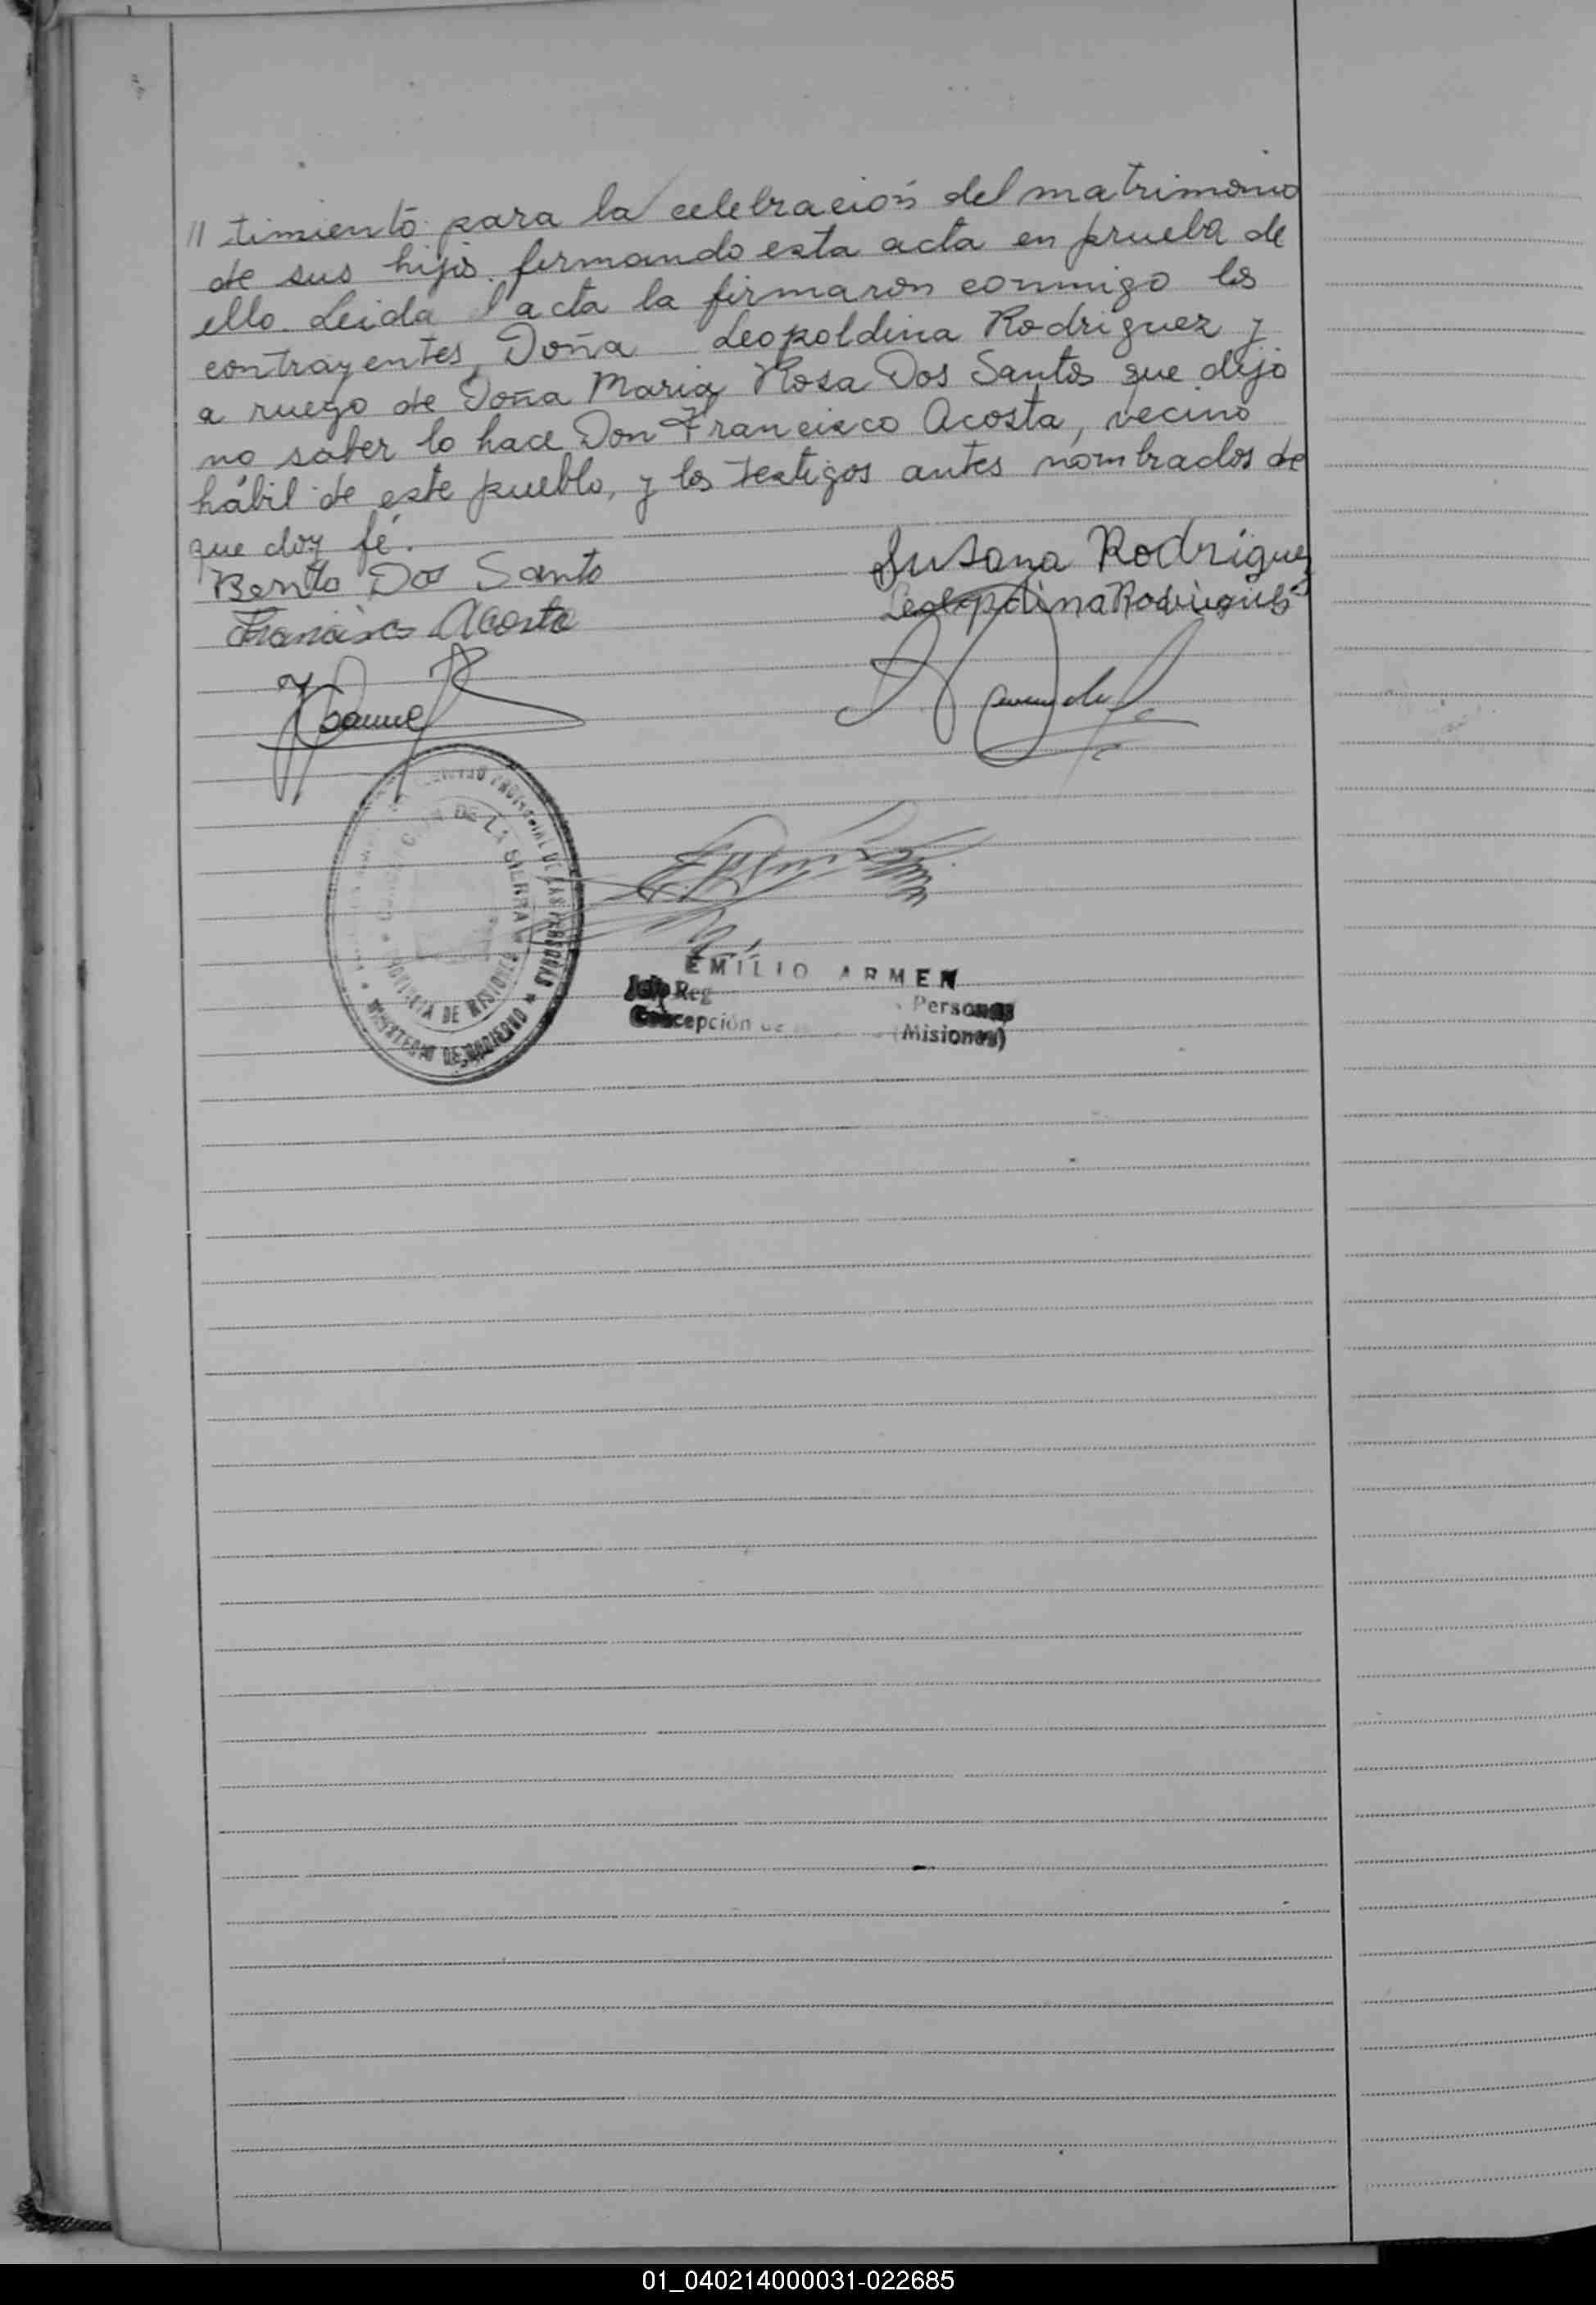 // timiento para la celebración del matrimonio
de sus hijos firmando esta acta en prueba de
ello. Leida l acta la firmaron conmigo los
contrayentes, Doña Leopoldina Rodriguez y
a ruego de Doña Maria Rosa Dos Santos que dijo
no saber lo hace Don Francisco Acosta, vecino
hábil de este pueblo, y los testigos antes nombrados de
que doy fé.
Benito Dos Santo
Susana Rodriguez
Francisco Acosta
DE LA SIERRA
DE LAS PERSONAS
PROVINCIA DE MISIONES
MINISTERIO DE GOBIERNO
EMILIO ARMEN
Jefe Reg Personas
Concepción de (Misiones)
01_040214000031-022685